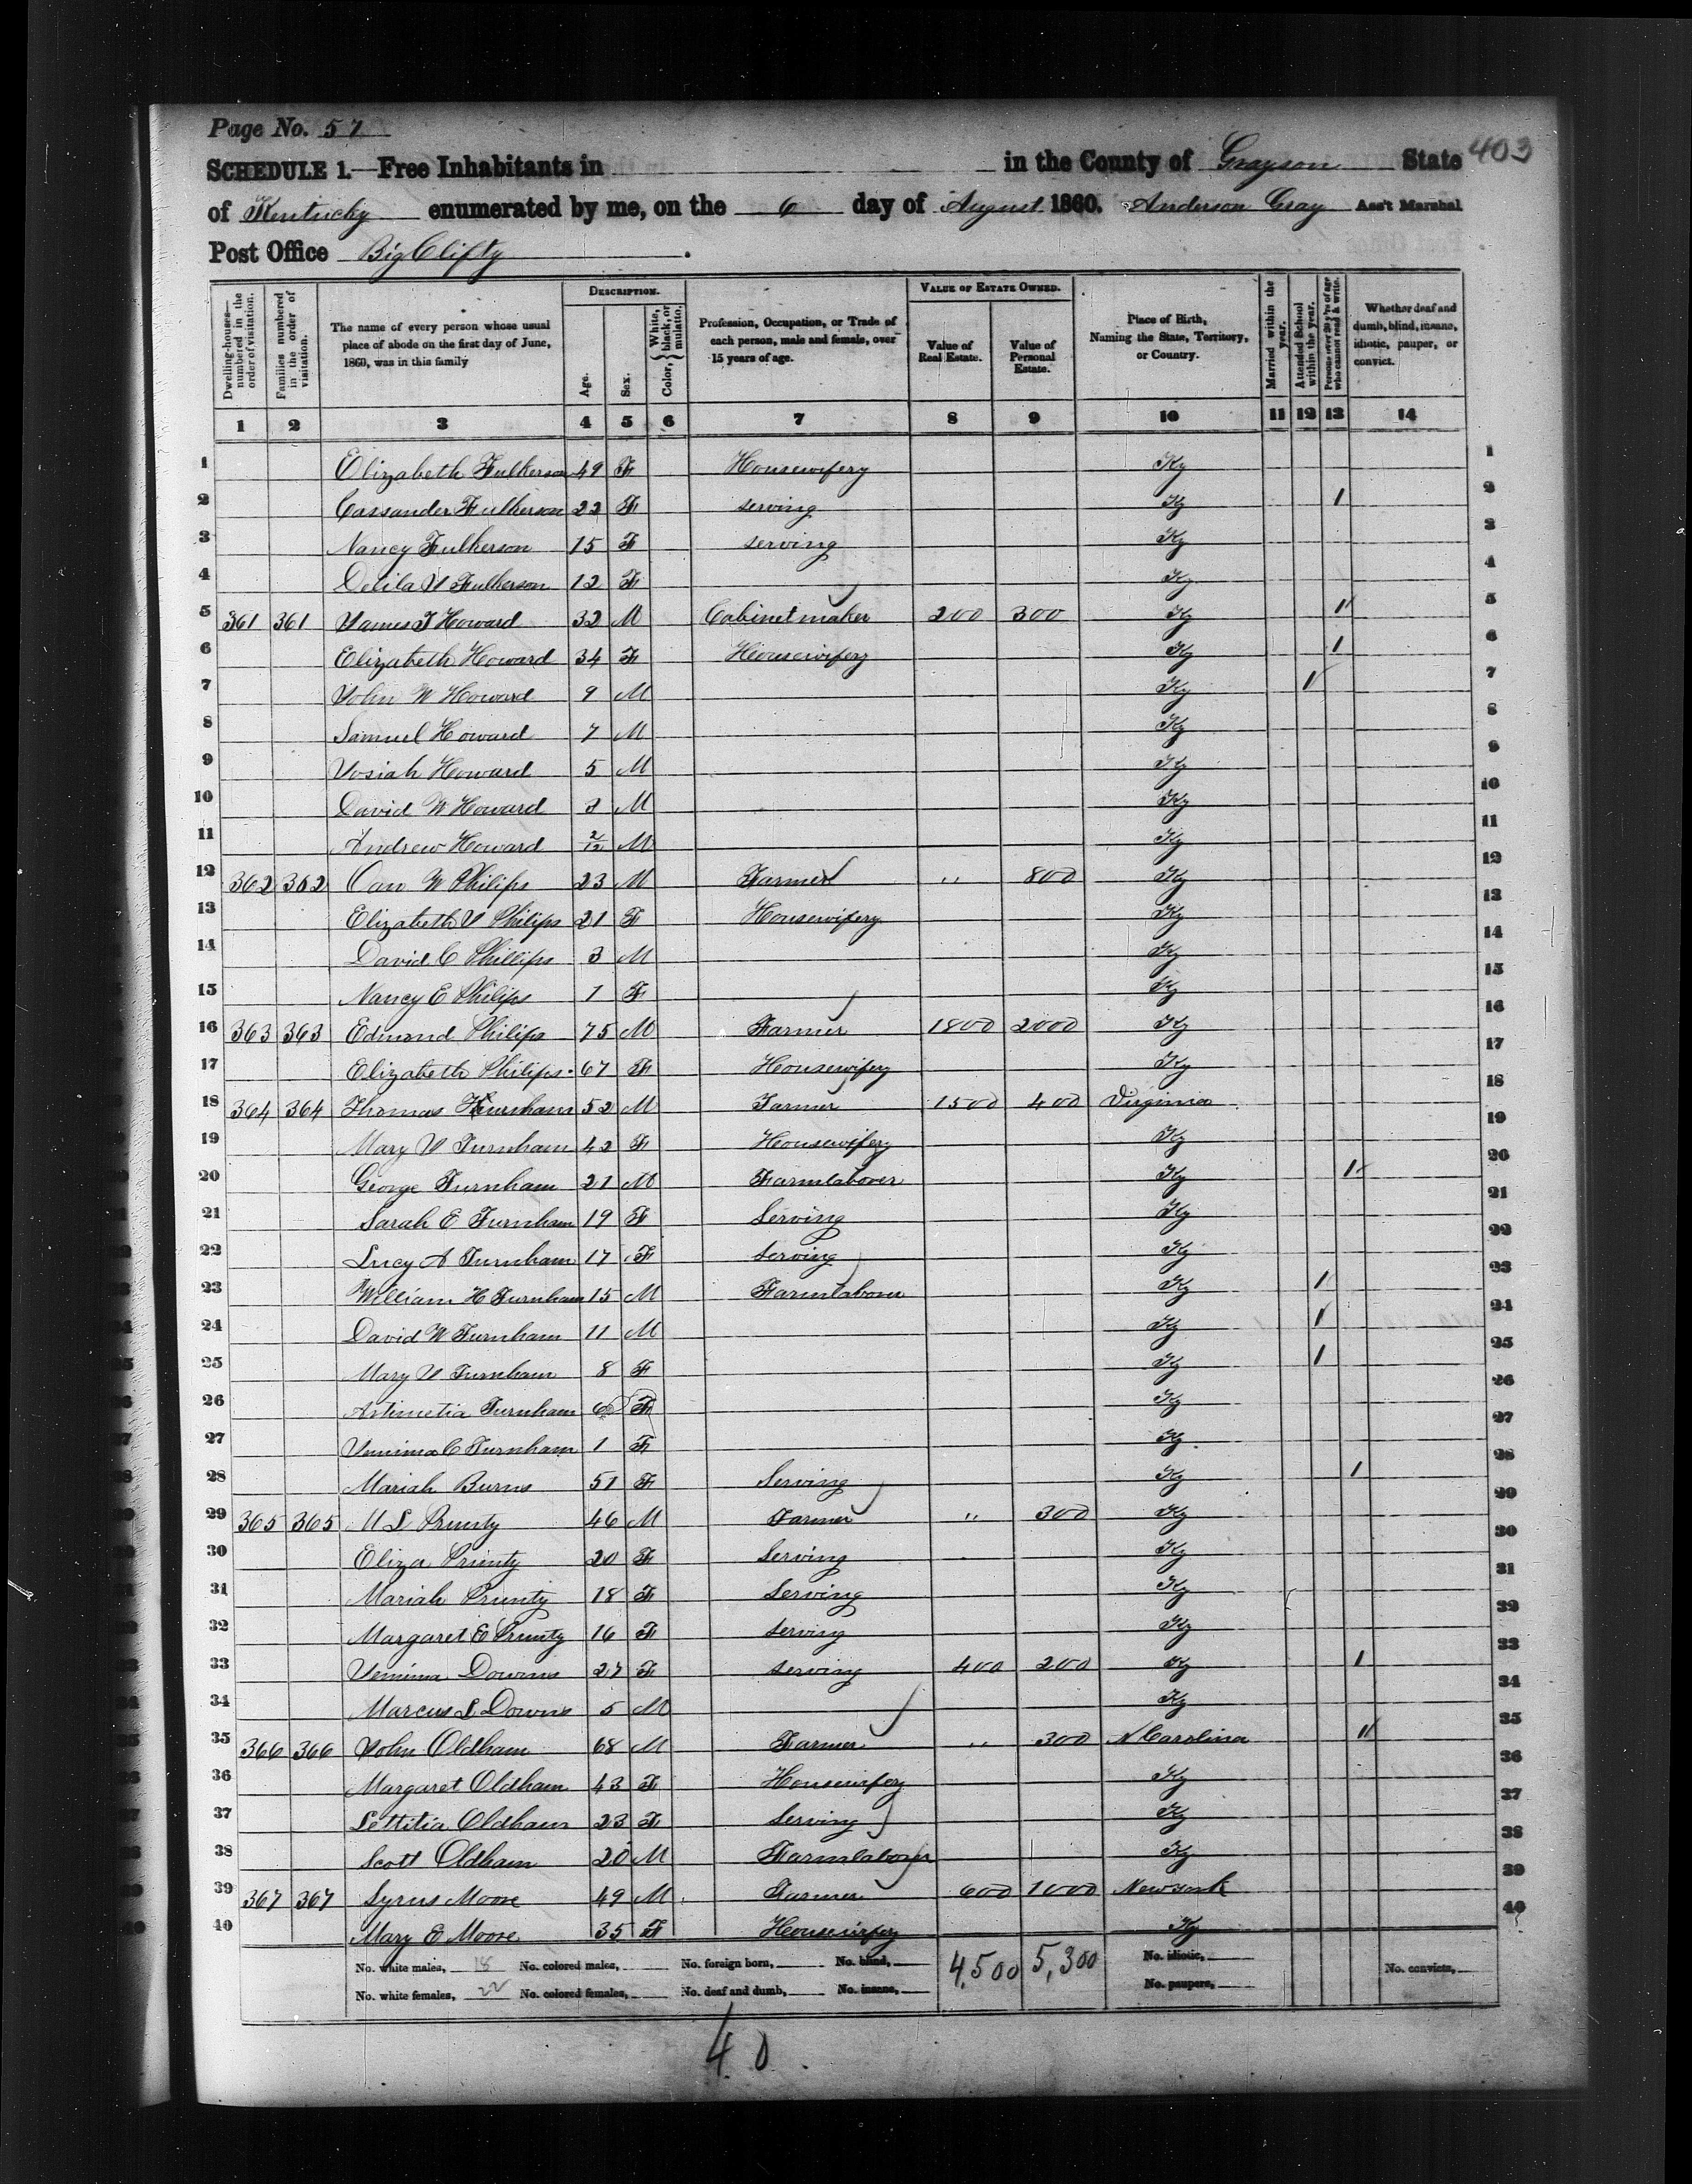 Page No. 57
403
SCHEDULE 1.—Free Inhabitants in in the County of Grayson State
of Kentucky enumerated by me, on the 6 day of August 1860. Anderson Gray Ass't Marshal
Post Office Big Clifty
Dwelling-houses—numbered in the order of visitation.
Families numbered in the order of visitation.
The name of every person whose usual place of abode on the first day of June, 1860, was in this family
DESCRIPTION.
Age.
Sex.
Color, { White, black, or mulatto.
Profession, Occupation, or Trade of each person, male and female, over 15 years of age.
VALUE OF ESTATE OWNED.
Value of Real Estate.
Value of Personal Estate.
Place of Birth, Naming the State, Territory, or Country.
Married within the year.
Attended School within the year.
Persons over 20 y'rs of age who cannot read & write.
Whether deaf and dumb, blind, insane, idiotic, pauper, or convict.
1 2 3 4 5 6 7 8 9 10 11 12 13 14
1 Elizabeth Fulkerson 49 F Housewifery Ky 1
2 Cassander Fulkerson 22 F serving Ky 1 2
3 Nancy Fulkerson 15 F serving Ky 3
4 Delila J Fulkerson 12 F Ky 4
5 361 361 James T Howard 32 M Cabinet maker 200 300 Ky 1 5
6 Elizabeth Howard 34 F Housewifery Ky 1 6
7 John W Howard 9 M Ky 1 7
8 Samuel Howard 7 M Ky 8
9 Josiah Howard 5 M Ky 9
10 David W Howard 3 M Ky 10
11 Andrew Howard 2/12 M Ky 11
12 362 362 W Philips 23 M Farmer " 800 Ky 12
13 Elizabeth J Philips 21 F Housewifery Ky 13
14 David C Phillips 3 M Ky 14
15 Nancy E Philips 1 F Ky 15
16 363 363 Edmond Philips 75 M Farmer 1800 2000 Ky 16
17 Elizabeth Philips 67 F Housewifery Ky 17
18 364 364 Thomas 52 M Farmer 1500 400 Virginia 18
19 Mary J Furnham 42 F Housewifery Ky 19
20 George Furnham 21 M Farmlaborer Ky 1 20
21 Sarah E Furnham 19 F Serving Ky 21
22 Lucy A Furnham 17 F serving Ky 22
23 William H Furnham 15 M Farmlaborer Ky 1 23
24 David W Furnham 11 M Ky 1 24
25 Mary J Furnham 8 F Ky 1 25
26 Artimetia Furnham 6 F Ky 26
27 Jemima C Furnham 1 F Ky 27
28 Mariah Burns 51 F Serving Ky 1 28
29 365 365 L Prunty 46 M Farmer " 300 Ky 29
30 Eliza Prunty 20 F Serving Ky 30
31 Mariah Prunty 18 F Serving Ky 31
32 Margaret E Prunty 16 F serving Ky 32
33 Jemima Downs 27 F serving 400 200 Ky 1 33
34 Marcus L Downs 5 M Ky 34
35 366 366 John Oldham 68 M Farmer " 300 N Carolina 1 35
36 Margaret Oldham 43 F Housewifery Ky 36
37 Lettitia Oldham 23 F Serving Ky 37
38 Scott Oldham 20 M Farmlaborer Ky 38
39 367 367 Syrus Moore 49 M Farmer 600 1000 Newyork 39
40 Mary E Moore 35 F Housewifery Ky 40
No. white males, 18 No. colored males, No. foreign born, No. blind, 4,500 5,300 No. idiotic, No. convicts,
No. white females, 22 No. colored females, No. deaf and dumb, No. insane, No. paupers,
40